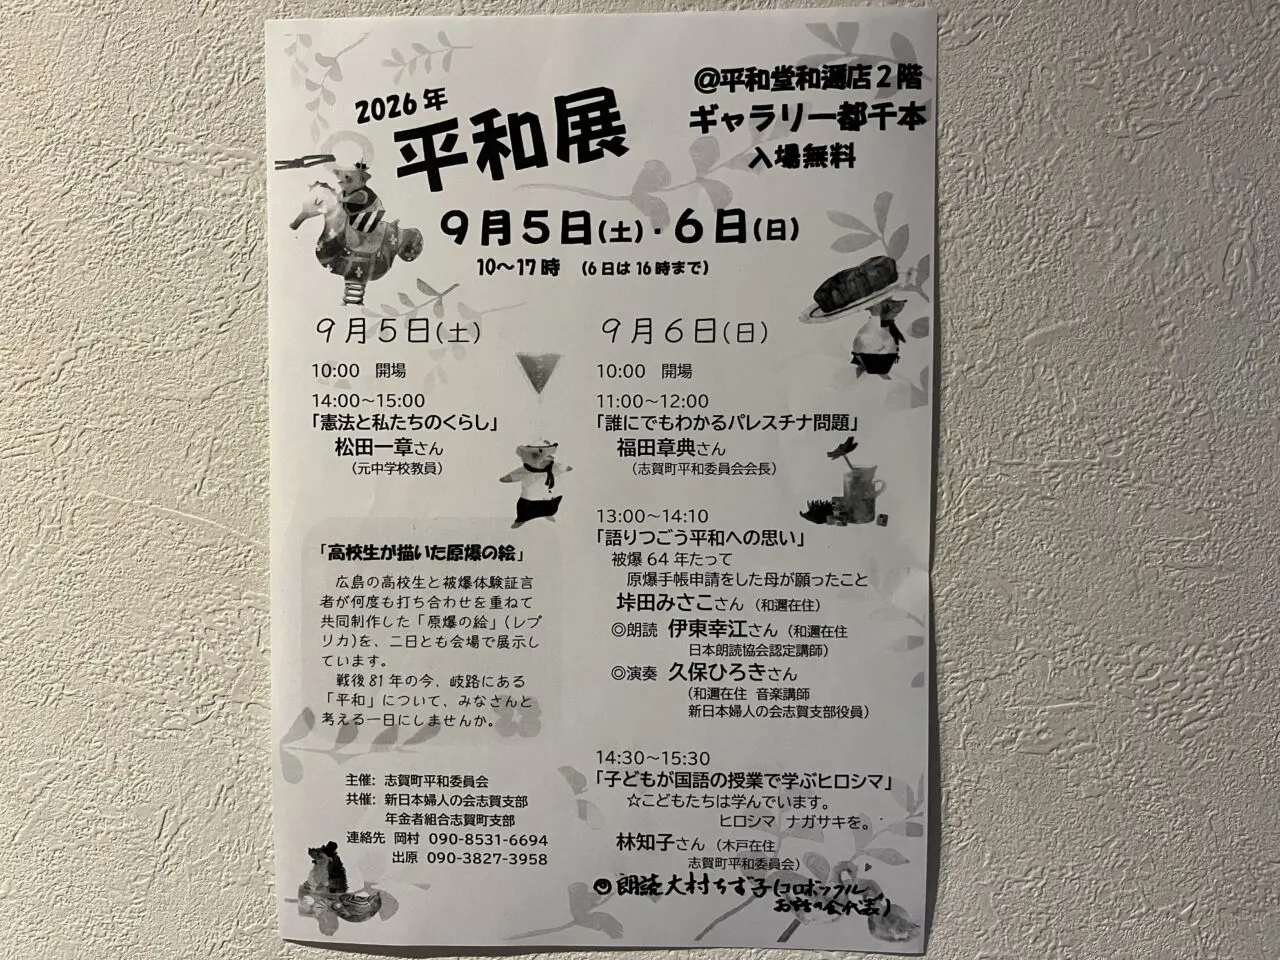 2026年
平和展
@平和堂和邇店2階
ギャラリー都千本
入場無料
9月5日(土)・6日(日)
10～17時 (6日は16時まで)
9月5日(土)
10:00 開場
14:00～15:00
「憲法と私たちのくらし」
松田一章さん
(元中学校教員)
「高校生が描いた原爆の絵」
広島の高校生と被爆体験証言
者が何度も打ち合わせを重ねて
共同制作した「原爆の絵」(レプ
リカ)を、二日とも会場で展示し
ています。
戦後81年の今、岐路にある
「平和」について、みなさんと
考える一日にしませんか。
主催: 志賀町平和委員会
共催: 新日本婦人の会志賀支部
年金者組合志賀町支部
連絡先 岡村 090-8531-6694
出原 090-3827-3958
9月6日(日)
10:00 開場
11:00～12:00
「誰にでもわかるパレスチナ問題」
福田章典さん
(志賀町平和委員会会長)
13:00～14:10
「語りつごう平和への思い」
被爆64年たって
原爆手帳申請をした母が願ったこと
垰田みさこさん (和邇在住)
◎朗読 伊東幸江さん (和邇在住
日本朗読協会認定講師)
◎演奏 久保ひろきさん
(和邇在住 音楽講師
新日本婦人の会志賀支部役員)
14:30～15:30
「子どもが国語の授業で学ぶヒロシマ」
☆こどもたちは学んでいます。
ヒロシマ ナガサキを。
林知子さん (木戸在住
志賀町平和委員会)
◎朗読 大村ちず子(コロボックル
お話の会代表)